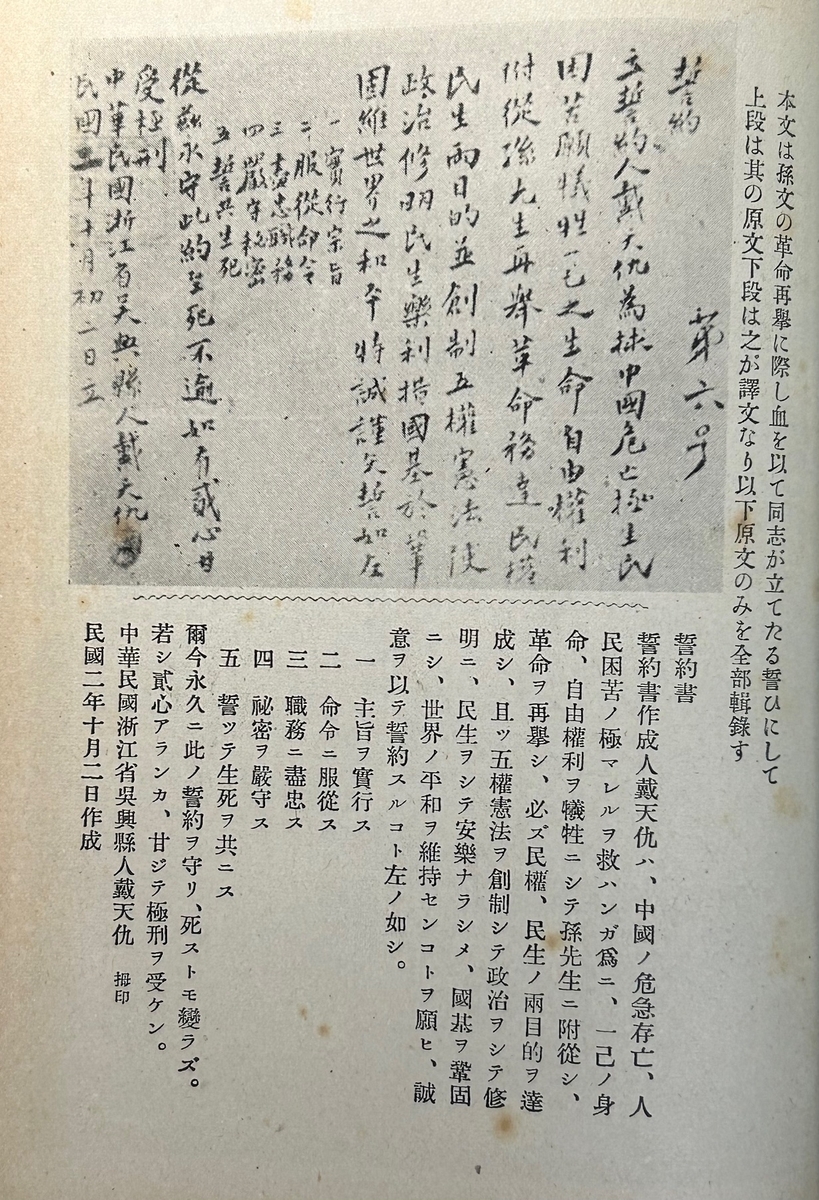 本文は孫文の革命再擧に際し血を以て同志が立てたる誓ひにして
上段は其の原文下段は之が譯文なり以下原文のみを全部輯錄す
第六号
誓約
立誓約人戴天仇為拯中國危亡拯生民
困苦願犧牲一己之生命自由權利
附從孫先生再舉革命務達民權
民生兩目的並創制五權憲法使
政治修明民生樂利措國基於鞏
固維世界之和平特誠謹矢誓如左
一實行宗旨
二服從命令
三盡忠職務
四嚴守秘密
五誓共生死
從茲永守此約至死不渝如有貳心甘
受極刑
中華民國浙江省吳興縣人戴天仇
民國二年十月初二日立
誓約書
誓約書作成人戴天仇ハ、中國ノ危急存亡、人
民困苦ノ極マレルヲ救ハンガ爲ニ、一己ノ身
命、自由權利ヲ犧牲ニシテ孫先生ニ附從シ、
革命ヲ再擧シ、必ズ民權、民生ノ兩目的ヲ達
成シ、且ツ五權憲法ヲ創制シテ政治ヲシテ修
明ニ、民生ヲシテ安樂ナラシメ、國基ヲ鞏固
ニシ、世界ノ平和ヲ維持センコトヲ願ヒ、誠
意ヲ以テ誓約スルコト左ノ如シ。
一 主旨ヲ實行ス
二 命令ニ服從ス
三 職務ニ盡忠ス
四 祕密ヲ嚴守ス
五 誓ッテ生死ヲ共ニス
爾今永久ニ此ノ誓約ヲ守リ、死ストモ變ラズ。
若シ貳心アランカ、甘ジテ極刑ヲ受ケン。
中華民國浙江省吳興縣人戴天仇 拇印
民國二年十月二日作成